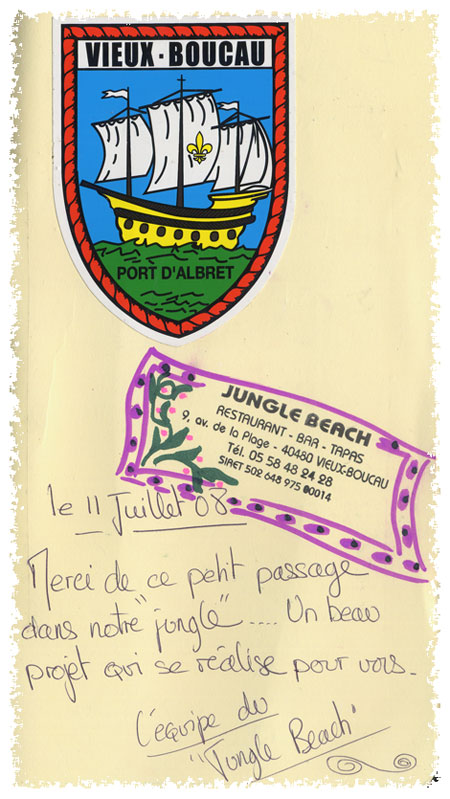 VIEUX-BOUCAU
PORT D'ALBRET
JUNGLE BEACH
RESTAURANT - BAR - TAPAS
9, av. de la Plage - 40480 VIEUX-BOUCAU
Tél. 05 58 48 24 28
SIRET 502 648 975 00014
le 11 Juillet 08
Merci de ce petit passage
dans notre "jungle" .... Un beau
projet qui se réalise pour vous.
L'équipe du
"Jungle Beach"